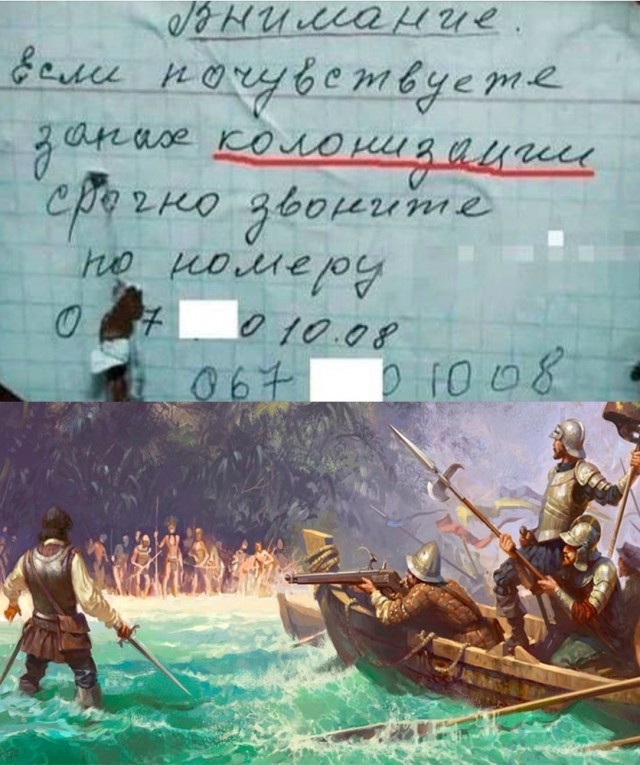 Внимание.
Если почувствуете
запах колонизации
срочно звоните
по номеру
0 7 0 10.08
067 0 10 08